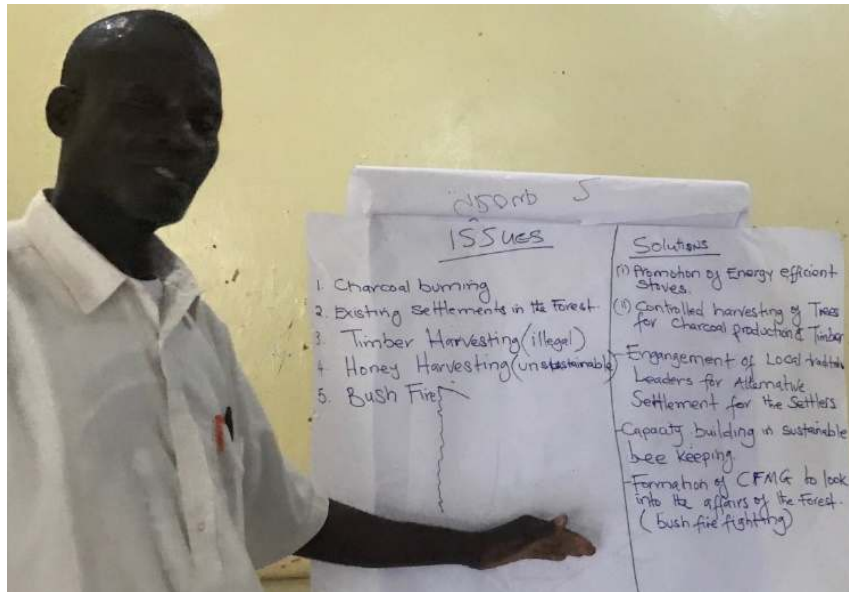 ISSUES
1. Charcoal burning
2. Existing Settlements in the Forest.
3. Timber Harvesting (illegal)
4. Honey Harvesting (unsustainable)
5. Bush Fire
Solutions
(i) Promotion of Energy efficient
Stoves.
(ii) Controlled harvesting of Trees
for Charcoal production & Timber
- Engangement of Local
Leaders for Alternative
Settlement for the Settlers
- Capacity building in sustainable
bee keeping
- Formation of CFMG to look
into the affairs of the Forest.
(bush fire fighting)